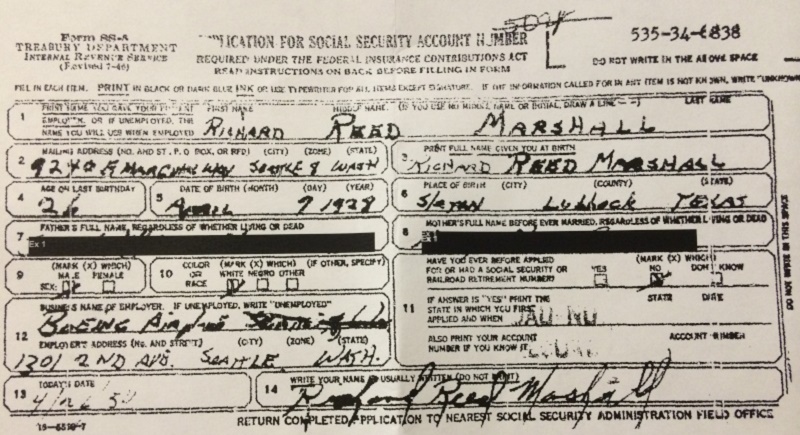 Form SS-5
TREASURY DEPARTMENT
INTERNAL REVENUE SERVICE
(Revised 7-46)
APPLICATION FOR SOCIAL SECURITY ACCOUNT NUMBER
REQUIRED UNDER THE FEDERAL INSURANCE CONTRIBUTIONS ACT
READ INSTRUCTIONS ON BACK BEFORE FILLING IN FORM
535-34-6838
DO NOT WRITE IN THE ABOVE SPACE
FILL IN EACH ITEM. PRINT IN BLACK OR DARK BLUE INK OR USE TYPEWRITER FOR ALL ITEMS EXCEPT SIGNATURE. IF THE INFORMATION CALLED FOR IN ANY ITEM IS NOT KNOWN, WRITE "UNKNOWN"
1 PRINT NAME YOU GAVE YOUR PRESENT EMPLOYER, OR IF UNEMPLOYED, THE NAME YOU WILL USE WHEN EMPLOYED
FIRST NAME MIDDLE NAME (IF YOU USE NO MIDDLE NAME OR INITIAL, DRAW A LINE —) LAST NAME
RICHARD REED MARSHALL
2 MAILING ADDRESS (NO. AND ST., P.O. BOX, OR RFD) (CITY) (ZONE) (STATE)
9240 E MARGINAL WAY SEATTLE 8 WASH
3 PRINT FULL NAME GIVEN YOU AT BIRTH
RICHARD REED MARSHALL
4 AGE ON LAST BIRTHDAY
5 DATE OF BIRTH (MONTH) (DAY) (YEAR)
APRIL 9 1928
6 PLACE OF BIRTH (CITY) (COUNTY) (STATE)
SLATON LUBBOCK TEXAS
7 FATHER'S FULL NAME, REGARDLESS OF WHETHER LIVING OR DEAD
Ex 1
8 MOTHER'S FULL NAME BEFORE EVER MARRIED, REGARDLESS OF WHETHER LIVING OR DEAD
Ex 1
9 SEX: (MARK (X) WHICH) MALE FEMALE
10 COLOR OR RACE (MARK (X) WHICH) (IF OTHER, SPECIFY)
WHITE NEGRO OTHER
11 HAVE YOU EVER BEFORE APPLIED FOR OR HAD A SOCIAL SECURITY OR RAILROAD RETIREMENT NUMBER?
(MARK (X) WHICH)
YES NO DON'T KNOW
IF ANSWER IS "YES" PRINT THE STATE IN WHICH YOU FIRST APPLIED AND WHEN
STATE DATE
ALSO PRINT YOUR ACCOUNT NUMBER IF YOU KNOW IT
ACCOUNT NUMBER
12 BUSINESS NAME OF EMPLOYER. IF UNEMPLOYED, WRITE "UNEMPLOYED"
BOEING AIRPLANE
EMPLOYER'S ADDRESS (NO. AND STREET) (CITY) (ZONE) (STATE)
1301 2ND AVE. SEATTLE, WASH.
13 TODAY'S DATE
14 WRITE YOUR NAME AS USUALLY WRITTEN (DO NOT PRINT)
Richard Reed Marshall
RETURN COMPLETED APPLICATION TO NEAREST SOCIAL SECURITY ADMINISTRATION FIELD OFFICE
DO NOT WRITE IN THIS SPACE